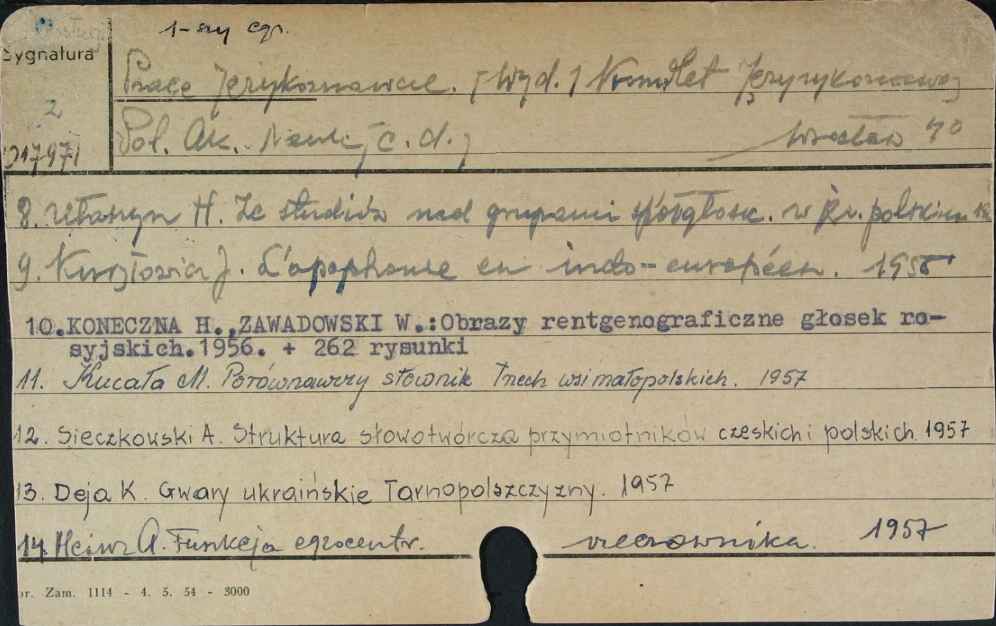 1-szy egz.
Sygnatura
Prace Językoznawcze. [Wyd.] Komitet Językoznawcz.
2
Pol. Ak. Nauk [c. d.] Wrocław 4°
217971
8. Ułaszyn H. Ze studiów nad grupami spółgłosk. w jęz. polskim
9. Kuryłowicz J. L'apophonie en indo-européen. 1956
10.KONECZNA H., ZAWADOWSKI W.:Obrazy rentgenograficzne głosek ro-
syjskich.1956. + 262 rysunki
11. Kucała M. Porównawczy słownik trzech wsi małopolskich. 1957
12. Sieczkowski A. Struktura słowotwórcza przymiotników czeskich i polskich 1957
13. Deja K. Gwary ukraińskie Tarnopolszczyzny. 1957
14. Heinz A. Funkcja egzocentr. rzeczownika. 1957
or. Zam. 1114 - 4. 5. 54 - 3000